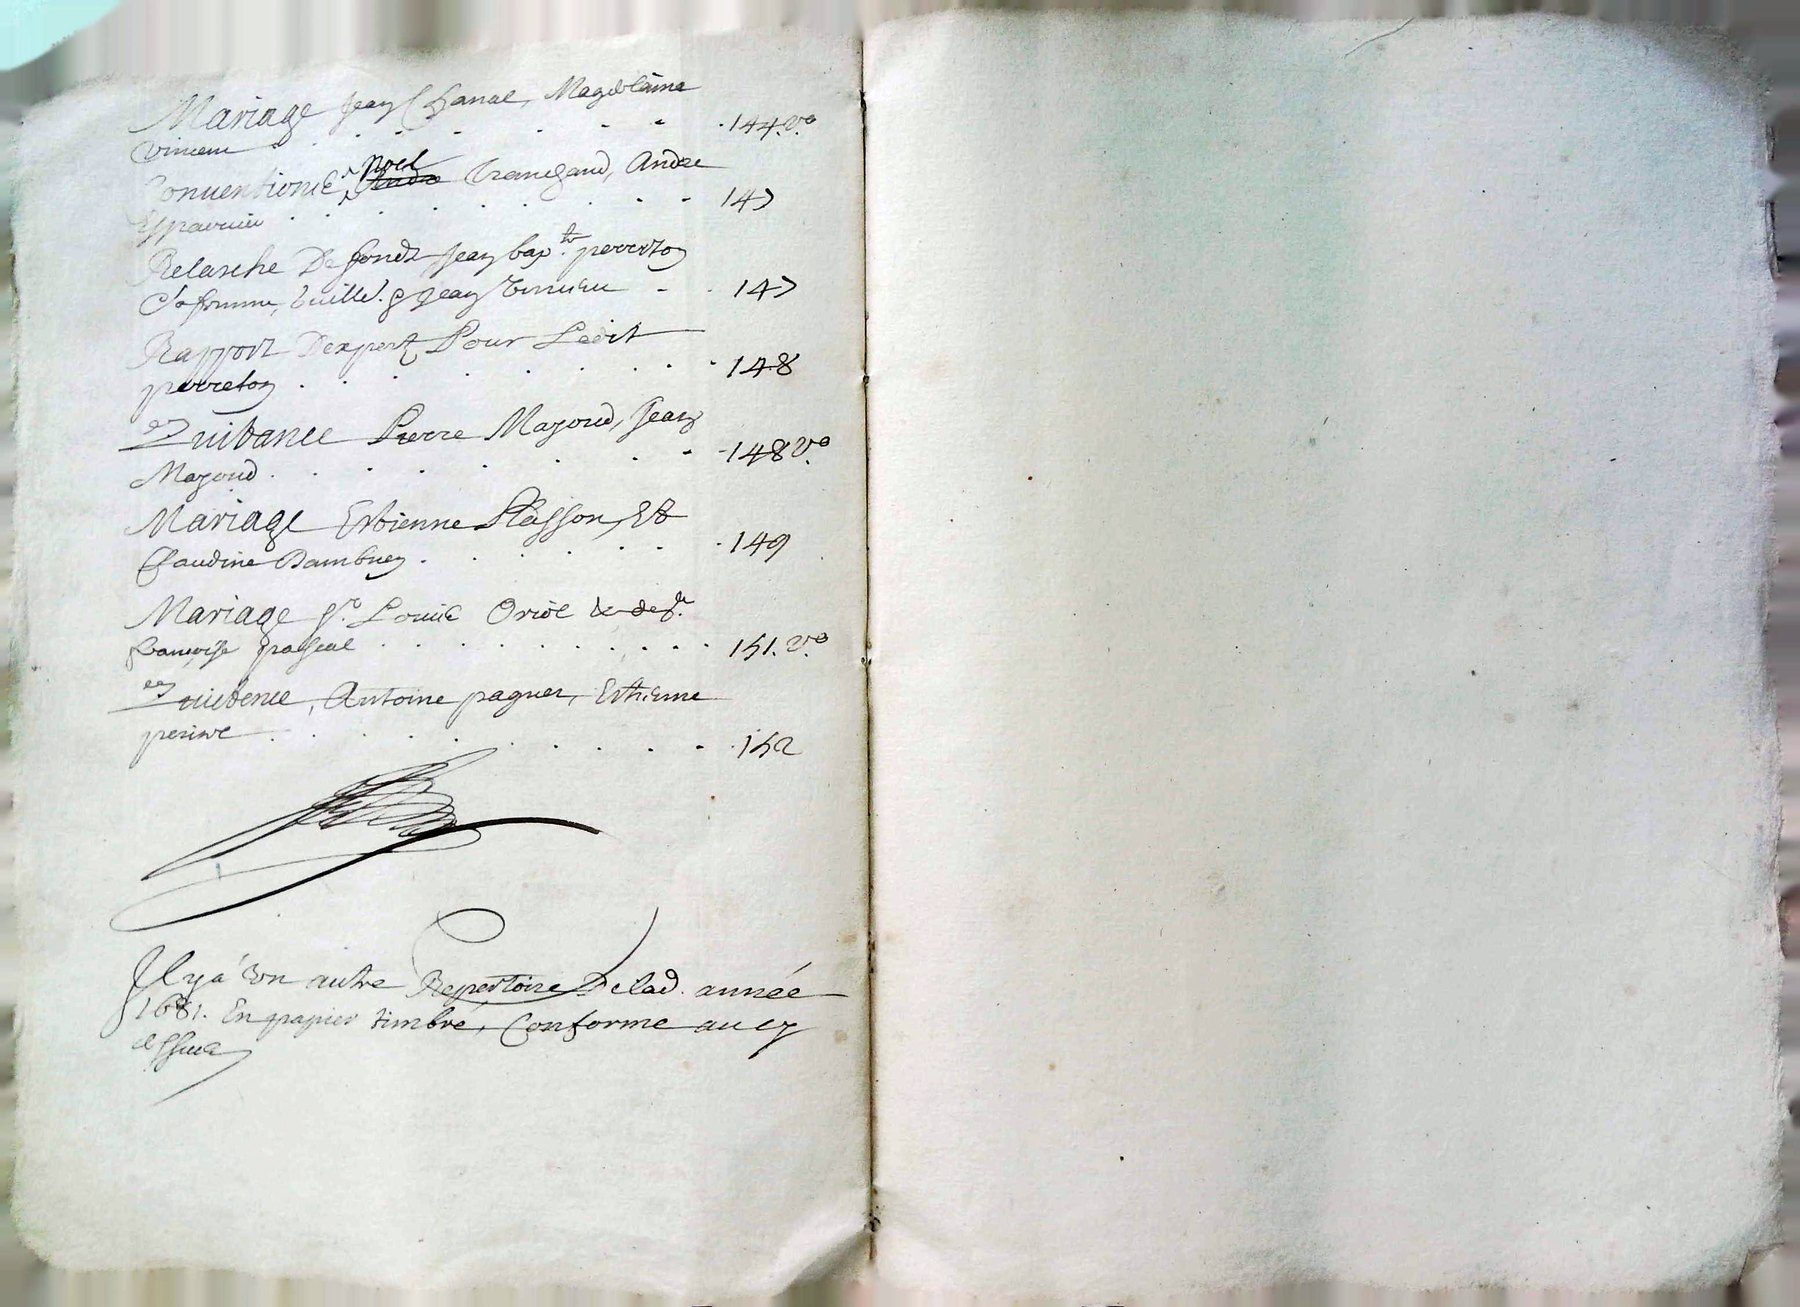 Mariage Jean Chanal, Magdelaine
Vincent . . . . . . . 144. v.o
Conventions, Noel Andre
. . . . . . . . 147
Relasche De fondz Jean bap.te perreton
Sa femme, Jean . . 147
Rapport Dexpertz Pour Ledit
perreton . . . . . . . . 148
Quittance Pierre Mazoud, Jean
Mazoud . . . . . . . 148 v.o
Mariage Estienne Plasson, Et
Claudine . . . . . . 149
Mariage Sr. Louis Oriol & de
françoise pascal . . . . . . . . . 151. v.o
Quittence, Antoine paguet, Esthienne
. . . . . . . . 152
Il y a un autre Repertoire De lad. année
1681. En papier timbré, Conforme au cy
dessus